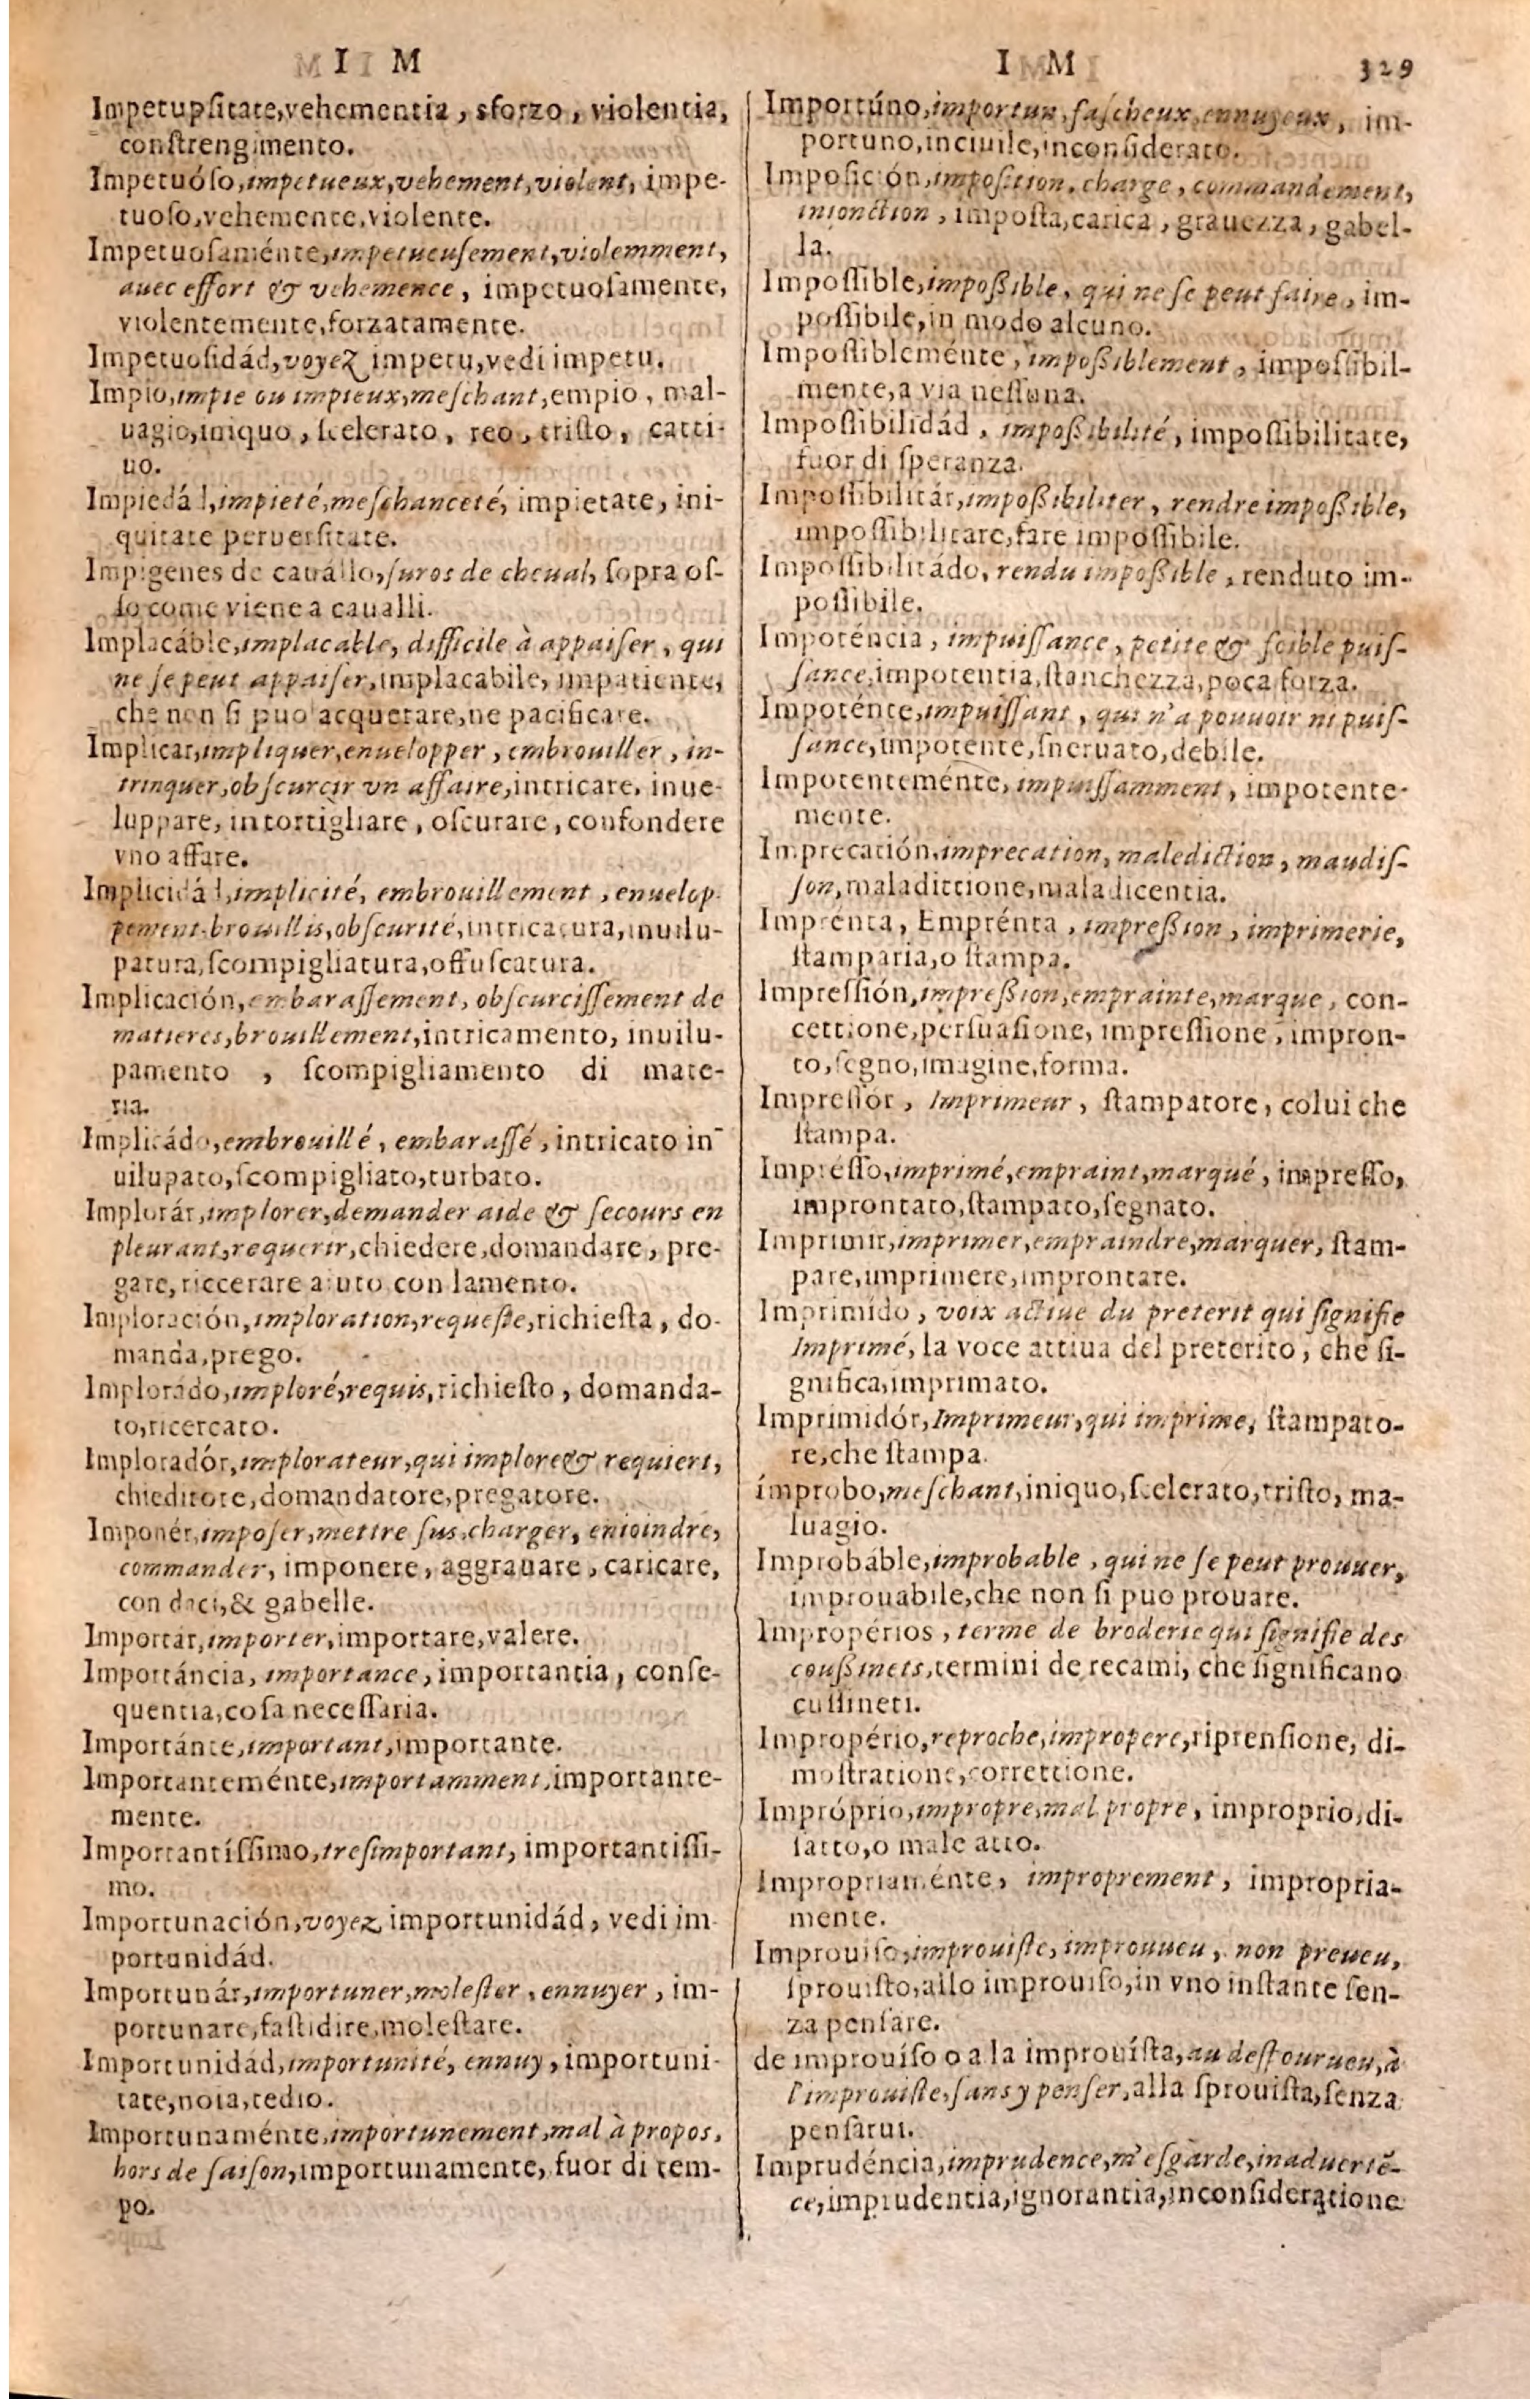 I M
Impetuositate,vehementia, sforzo, violentia,
constrengimento.
Impetuóso,impetueux,vehement,violent, impe-
tuoso,vehemente,violente.
Impetuosaménte,impetueusement,violemment,
auec effort & vehemence, impetuosamente,
violentemente,forzatamente.
Impetuosidád,voyez impetu,vedi impetu.
Impio,impie ou impieux,meschant,empio, mal-
uagio,iniquo, scelerato, reo, tristo, catti-
uo.
Impiedád,impieté,meschanceté, impietate, ini-
quitate peruersitate.
Impigenes de cauállo,suros de cheual, sopra os-
so come viene a caualli.
Implacáble,implacable, difficile à appaiser, qui
ne se peut appaiser,implacabile, impatiente,
che non si puo acquetare,ne pacificare.
Implicar,impliquer,enuelopper, embrouiller, in-
trinquer,obscurcir vn affaire,intricare, inue-
luppare, intortigliare, oscurare, confondere
vno affare.
Implicidád,implicité, embrouillement, enuelop-
pement.brouillis,obscurité,intricatura,inuilu-
patura,scompigliatura,offuscatura.
Implicación,embarassement, obscurcissement de
matieres,brouillement,intricamento, inuilu-
pamento, scompigliamento di mate-
ria.
Implicádo,embrouillé, embarassé, intricato in-
uilupato,scompigliato,turbato.
Implorár,implorer,demander aide & secours en
pleurant,requerir,chiedere,domandare, pre-
gare,riccerare aiuto con lamento.
Imploración,imploration,requeste,richiesta, do-
manda,prego.
Implorádo,imploré,requis,richiesto, domanda-
to,ricercato.
Imploradór,implorateur,qui implore & requiert,
chieditore,domandatore,pregatore.
Imponér,imposer,mettre sus,charger, enioindre,
commander, imponere, aggrauare, caricare,
con daci,& gabelle.
Importár,importer,importare,valere.
Importáncia, importance, importantia, conse-
quentia,cosa necessaria.
Importánte,important,importante.
Importanteménte,importamment,importante-
mente.
Importantíssimo,tresimportant, importantissi-
mo.
Importunación,voyez importunidád, vedi im-
portunidád.
Importunár,importuner,molester, ennuyer, im-
portunare,fastidire,molestare.
Importunidád,importunité, ennuy, importuni-
tate,noia,tedio.
Importunaménte,importunement,mal à propos,
hors de saison,importunamente, fuor di tem-
po.
I M 329
Importúno,importun,fascheux,ennuyeux, im-
portuno,inciuile,inconsiderato.
Imposición,imposition, charge, commandement,
inionction, imposta,carica, grauezza, gabel-
la.
Impossible,impoßible, qui ne se peut faire, im-
possibile,in modo alcuno.
Impossibleménte, impoßiblement, impossibil-
mente,a via nessuna.
Impossibilidád, impoßibilité, impossibilitate,
fuor di speranza.
Impossibilitár,impoßibiliter, rendre impoßible,
impossibilitare,fare impossibile.
Impossibilitádo, rendu impoßible, renduto im-
possibile.
Impoténcia, impuissance, petite & foible puis-
sance,impotentia,stanchezza,poca forza.
Impoténte,impuissant, qui n'a pouuoir ni puis-
sance,impotente,sneruato,debile.
Impotenteménte, impuissamment, impotente-
mente.
Imprecación,imprecation, malediction, maudis-
son,maladittione,maladicentia.
Imprénta, Emprénta, impreßion, imprimerie,
stamparia,o stampa.
Impressión,impreßion,emprainte,marque, con-
cettione,persuasione, impressione, impron-
to,segno,imagine,forma.
Impressór, Imprimeur, stampatore, colui che
stampa.
Imprésso,imprimé,empraint,marqué, impresso,
improntato,stampato,segnato.
Imprimir,imprimer,empraindre,marquer, stam-
pare,imprimere,improntare.
Imprimído, voix actiue du preterit qui signifie
Imprimé, la voce attiua del preterito, che si-
gnifica,imprimato.
Imprimidór,Imprimeur,qui imprime, stampato-
re,che stampa.
ímprobo,meschant,iniquo,scelerato,tristo, ma-
luagio.
Improbáble,improbable, qui ne se peut prouuer,
improuabile,che non si puo prouare.
Impropérios, terme de broderie qui signifie des
coußinets,termini de recami, che significano
cussineti.
Impropério,reproche,impropere,riprensione, di-
mostratione,correttione.
Impróprio,impropre,mal propre, improprio,di-
satto,o male atto.
Impropriaménte, improprement, impropria-
mente.
Improuiso,improuiste, improuueu, non preueu,
sprouisto,allo improuiso,in vno instante sen-
za pensare.
de improuíso o a la improuísta,au destourueu,à
l'improuiste,sans y penser,alla sprouista,senza
pensarui.
Imprudéncia,imprudence,m'esgarde,inaduertē-
ce,imprudentia,ignorantia,inconsideratione